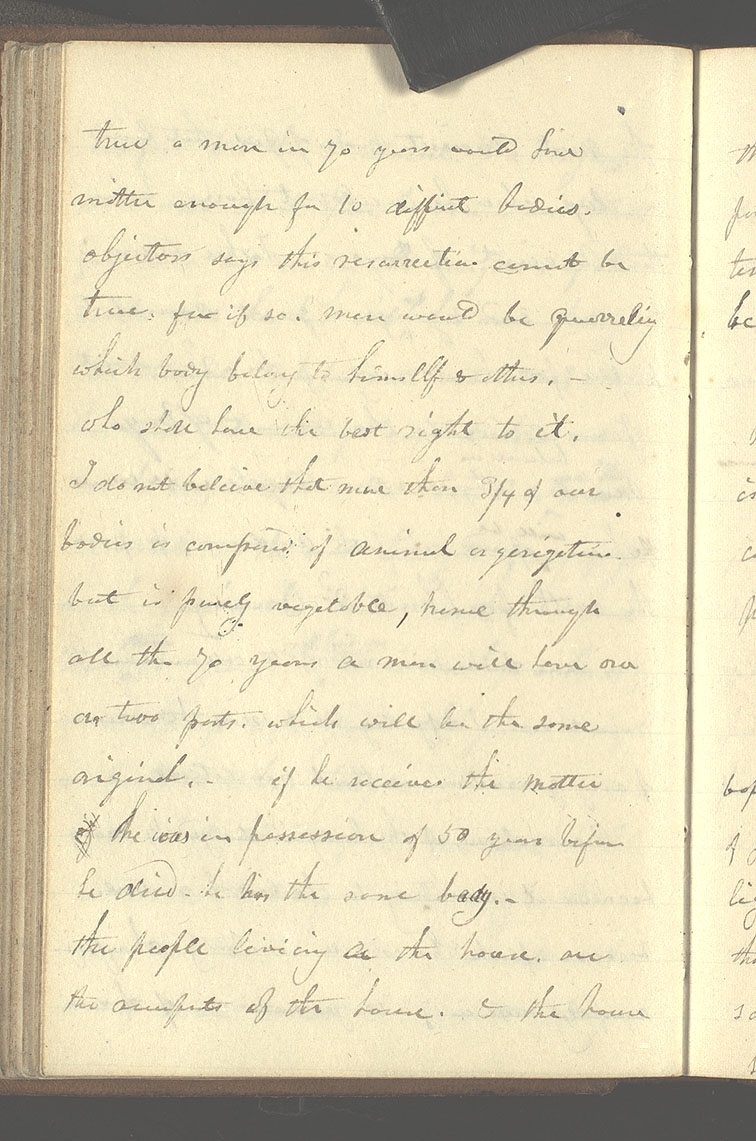 true a man in 70 years would have
matter enough for 10 different bodies.
objectors says this resurrection cannot be
true. for if so. men would be quarreling
which body belong to himself & others. -
who shall have the best right to it.
I do not beleive that more than 3/4 of our
bodies is composed of animal organization.
but is purely vegetable, hense through
all the 70 years a man will have one
or two parts. which will be the same
original. - if he receives the matter
he was in possession of 50 years before
he died. he has the same body. -
the people living in the house. are
the occupants of the house. & the house